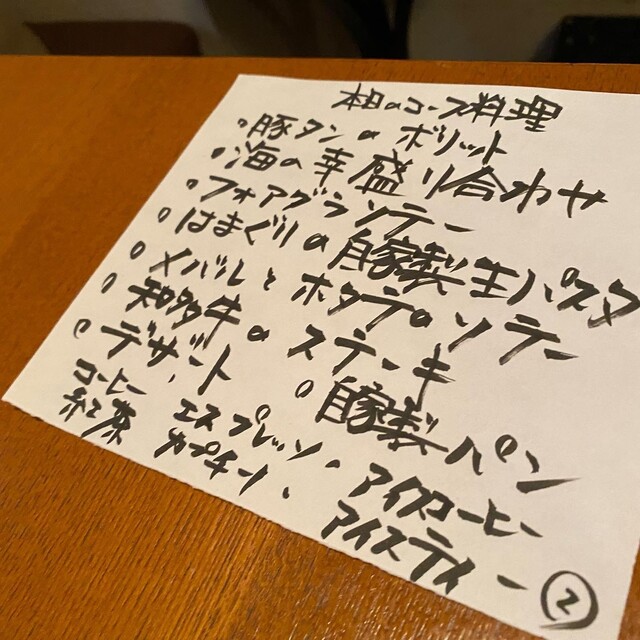 本日のコース料理
・豚タンのボリット
・海の幸盛り合わせ
・フォアグラソテー
・はまぐりの自家製生パスタ
・メバルとホタテのソテー
・知多牛のステーキ
・デザート ・自家製パン
コーヒー エスプレッソ、アイスコーヒー
紅茶 カプチーノ、アイスティー ②